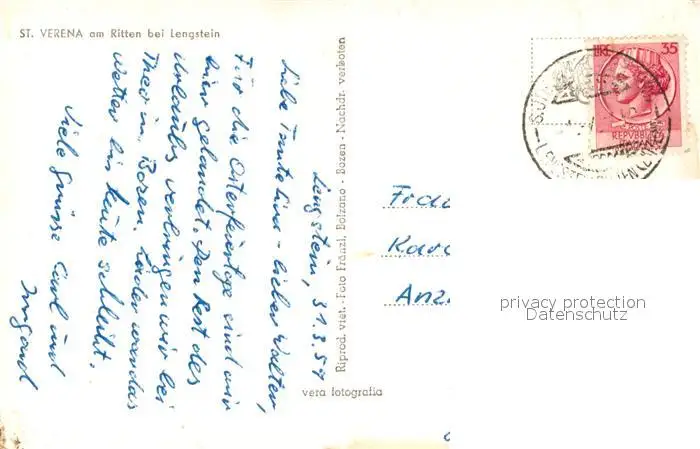 ST. VERENA am Ritten bei Lengstein
Lengstein, 31.3.59
Liebe Tante Lina - lieber Walter,
Für die Osterfeiertage sind wir
hier gelandet. Den Rest des
Urlaubs verbringen wir bei
Theo in Bozen. Leider war das
Wetter bis heute schlecht.
Viele Grüsse Carl und
Irmgard
Riprod. viet. - Foto Fränzl, Bolzano - Bozen - Nachdr. verboten
vera fotografia
LIRE 35
REPVBBLICA
Anz
privacy protection
Datenschutz